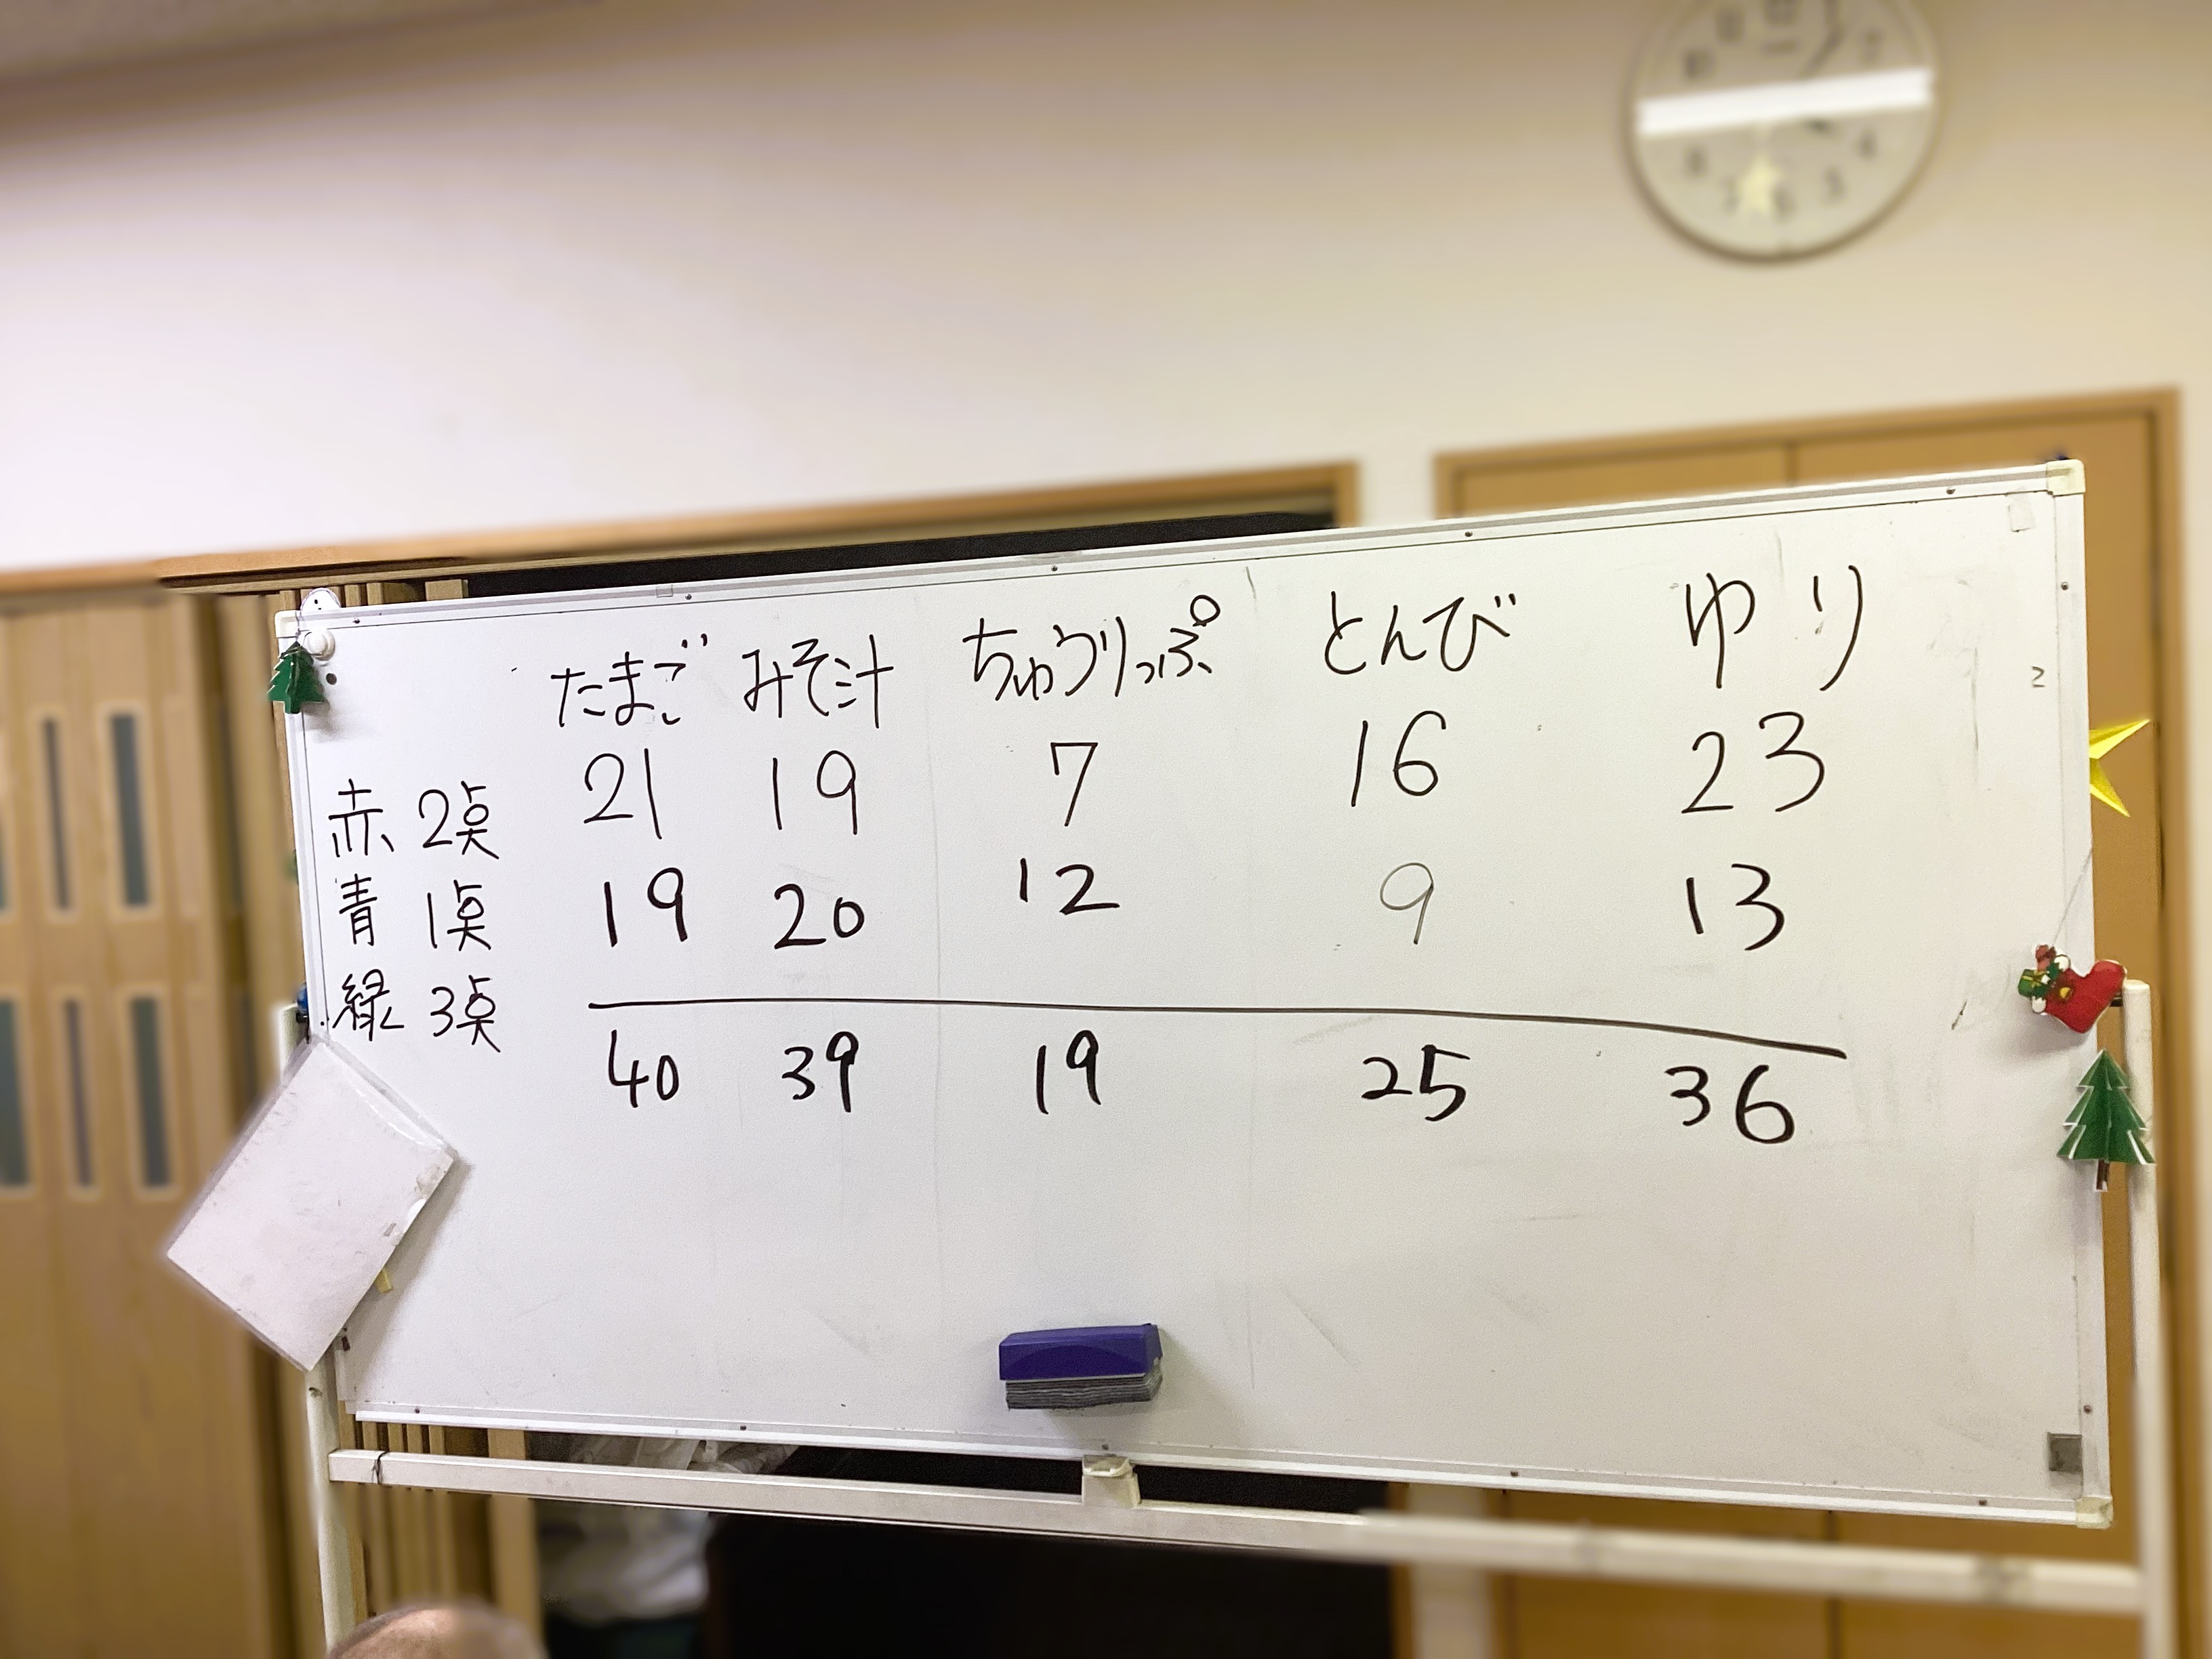 たまご みそ汁 ちゅうりっぷ とんび ゆり
赤 2点 21 19 7 16 23
青 1点 19 20 12 9 13
緑 3点
40 39 19 25 36